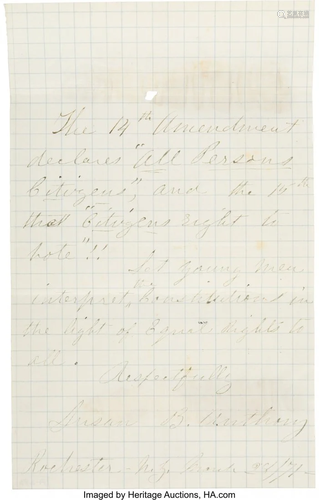 The 14th Amendment
declares "All Persons
Citizens", and the 15th
that "Citizens right to
vote"!!
Let young men
interpret Constitutions in
the light of Equal Rights to
all.
Respectfully
Susan B. Anthony
Rochester N.Y. March
Imaged by Heritage Auctions, HA.com